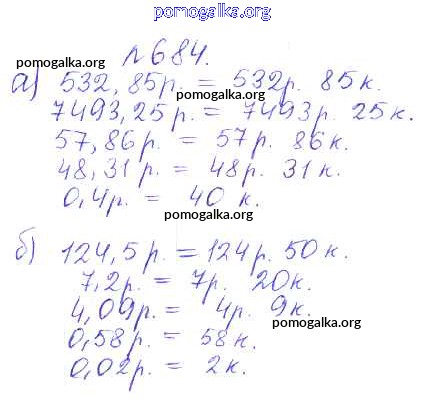 pomogalka.org
№684.
pomogalka.org
а) 532,85р. = 532р. 85к.
pomogalka.org
7493,25р. = 7493р. 25к.
57,86р. = 57р. 86к.
48,31р. = 48р. 31к.
0,4р. = 40 к.
pomogalka.org
б) 124,5р. = 124р. 50к.
7,2р. = 7р. 20к.
4,09р. = 4р. 9к.
pomogalka.org
0,58р. = 58к.
0,02р. = 2к.